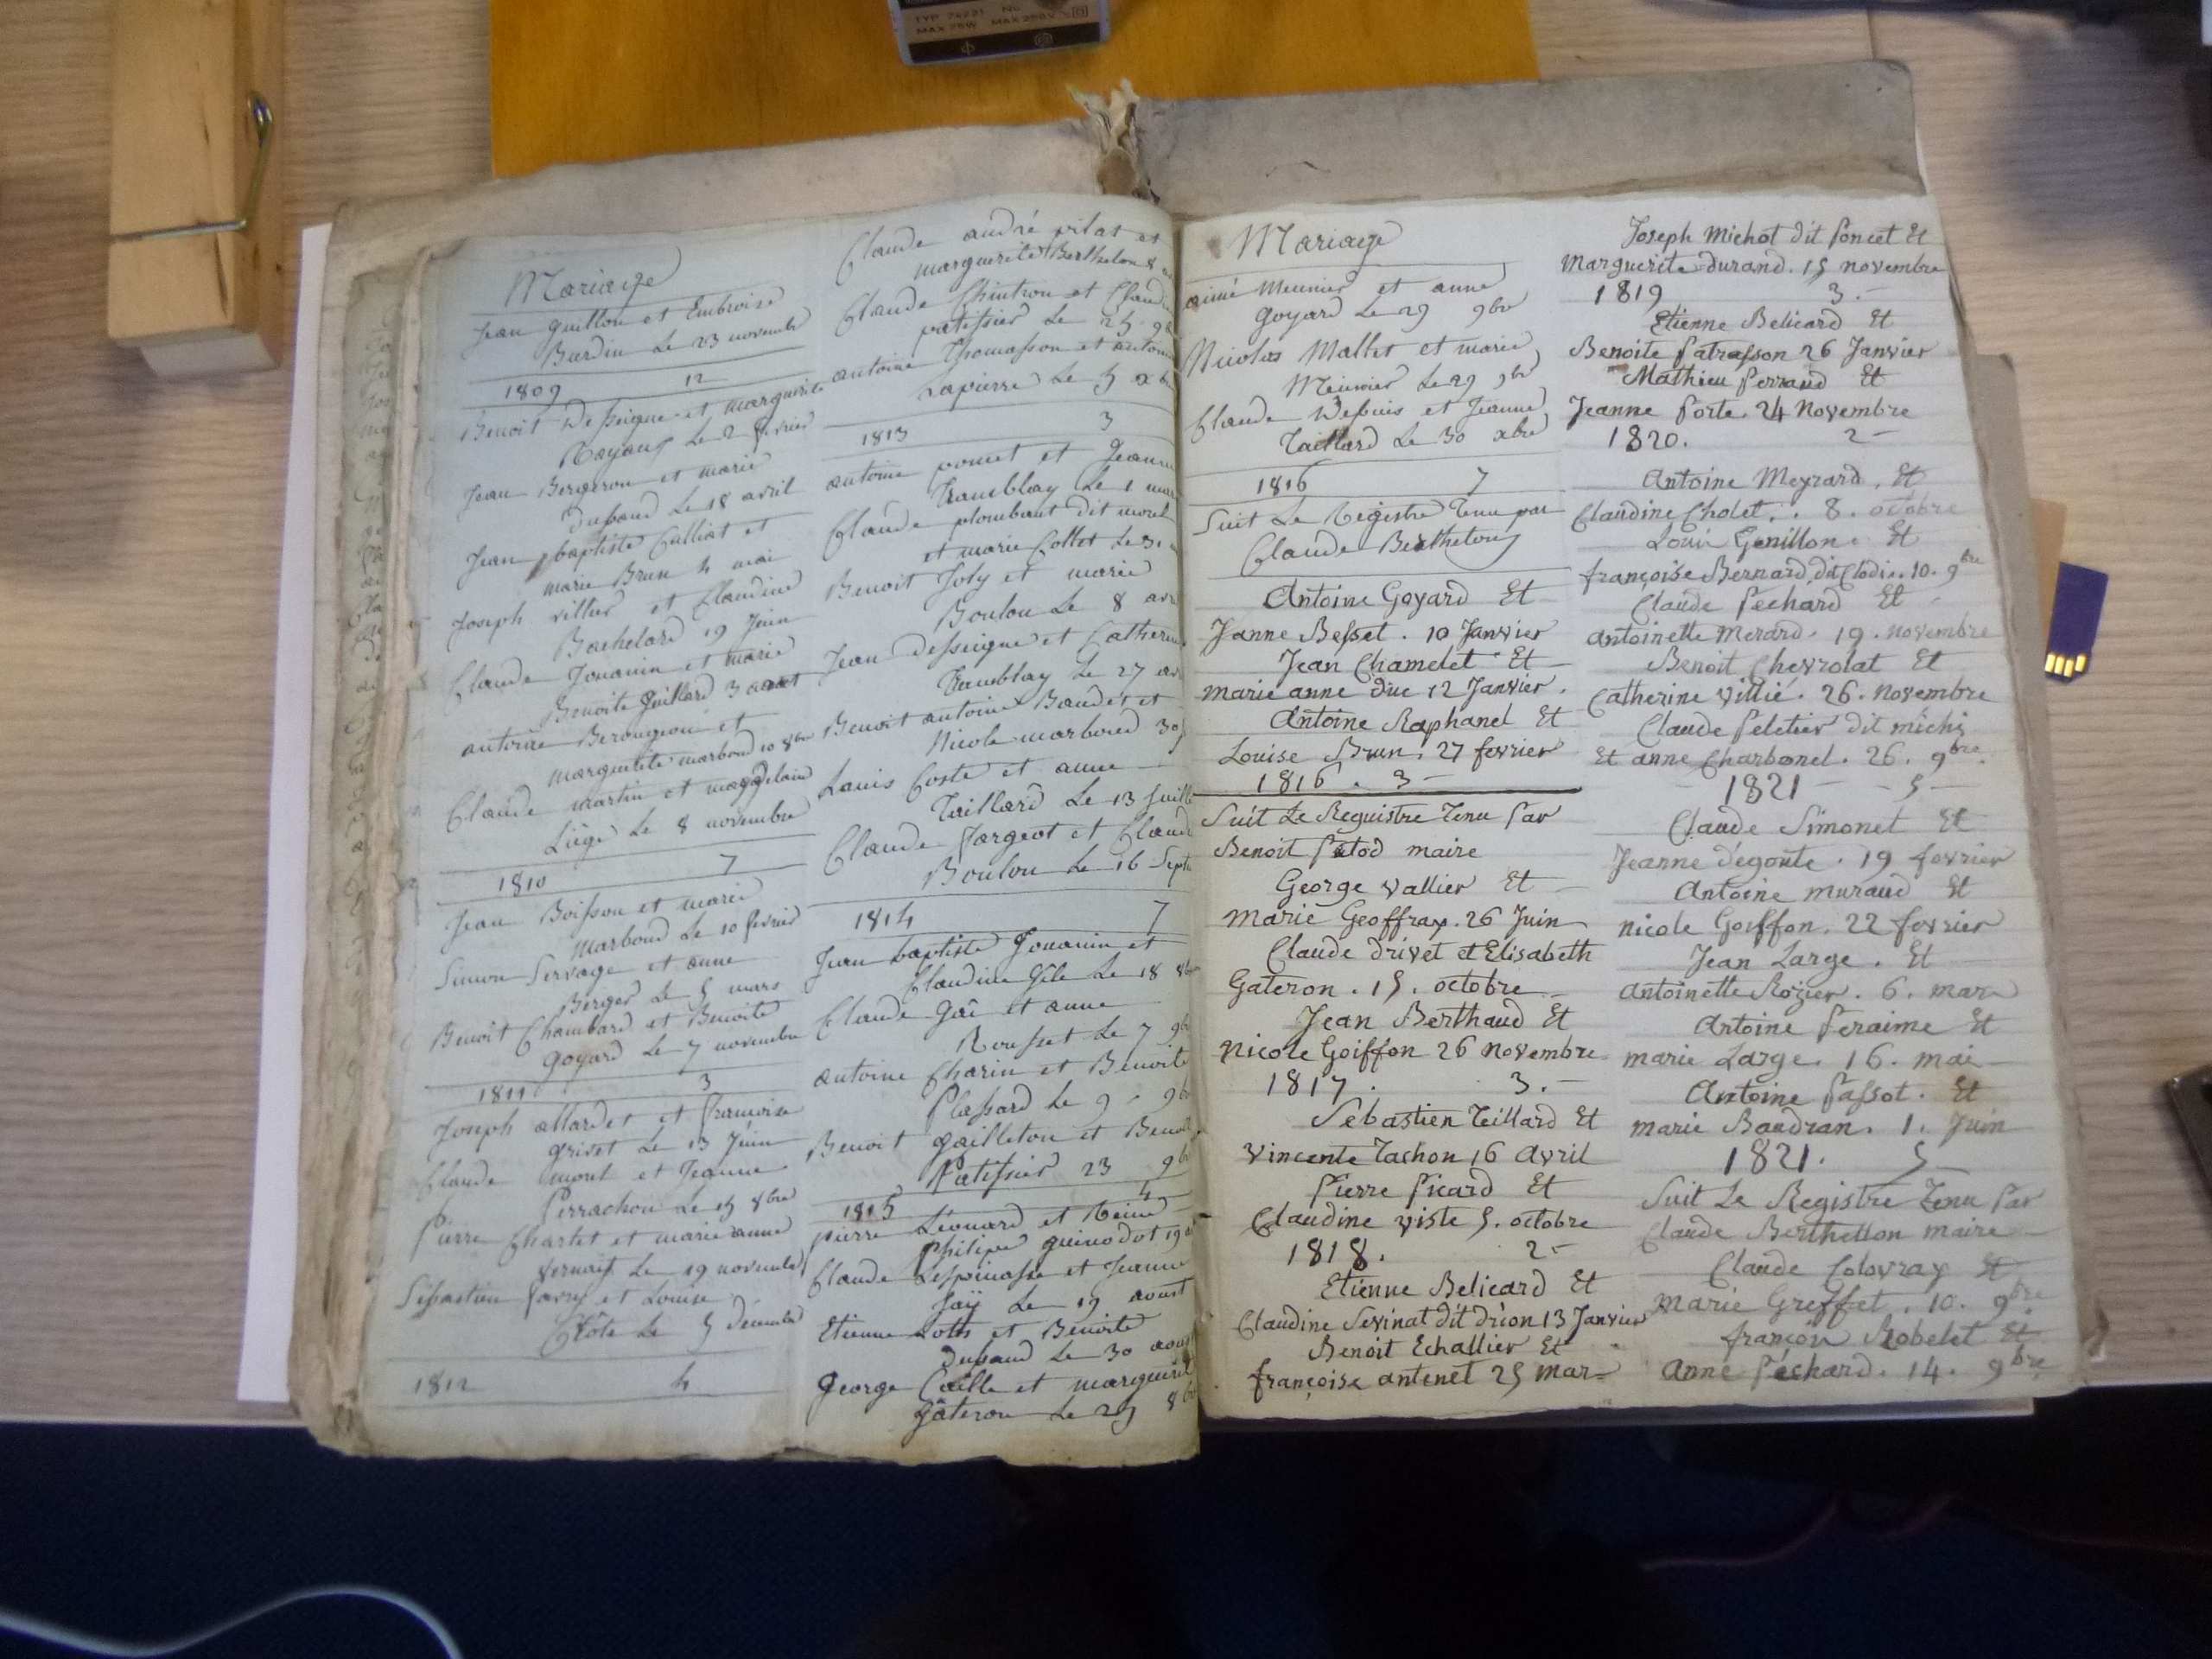 TYP 74221 No
MAX 25W MAX 250V
Mariage
Jean Guillon et Embroise
Burdin Le 23 novembre
1809 12
Benoit Desseigne et marguerite
Le 2 fevrier
Jean Bergeron et marie
dupaud Le 18 avril
Jean baptiste Culliat et
marie Brun 4 mai
Joseph villier et Claudine
Bachelard 19 Juin
Claude Jouanin et marie
Benoite Guillard 3 aout
antoine Berougeon et
marguerite marboud 10 8bre
Claude martin et magdelaine
Liège Le 8 novembre
1810 7
Jean Boisson et marie
Marboud Le 10 fevrier
Simon Servage et anne
Berger Le 5 mars
Benoit Chambard et Benoite
Goyard Le 7 novembre
1811 3
Joseph allardet et francoise
griset Le 13 Juin
Claude mont et Jeanne
Perrachon Le 15 8bre
Pierre Chartet et marie anne
Le 19 novembre
Sebastien favre et Louise
Côte Le 5 decembre
1812 4
Claude andré pilat et
marguerite Berthelon 8
Claude Chintron et Claudine
patissier Le 25 9b
antoine Thomasson et antoine
Lapierre Le 5 xb
1813 3
antoine poncet et Jeanne
Tramblay Le 1 mar
Claude plombaut dit morel
et marie Collet Le 3
Benoit Joly et marie
Boulou Le 8 avr
Jean desseigne et Catherine
Tramblay Le 27 av
Benoit antoine Baudet et
Nicole marboud 30
Louis Coste et anne
Taillard Le 13 Juille
Claude fargeot et Claud
Boulou Le 16 Septe
1814 7
Jean baptiste Jouanin et
Claudine Gële Le 18 8b
Claude Gäi et anne
Rousset Le 7 9b
antoine Charin et Benoite
Plassard Le 9 9b
Benoit gailleton et Benoit
Patissier 23 9b
1815 4
pierre Léonard et Reine
philipe guinodot 19
Claude Lespinasse et Jeanne
Jaÿ Le 19 aoust
Etienne Loth et Benoite
dupaud Le 30 aoust
George Caille et marguerite
gâteron Le 29 8b
Mariage
aimé Meunier et anne
goyard Le 29 9bre
Nicolas Mallet et marie
Meunier Le 29 9bre
Claude Depuis et Jeanne
Taillard Le 30 xbre
1816 7
Suit Le Regestre Tenu par
Claude Berthelon
Antoine Goyard Et
Janne Besset . 10 Janvier
Jean Chamelet Et
marie anne duc 12 Janvier .
Antoine Raphanel Et
Louise Brun . 27 fevrier
1816 . 3 -
Suit Le Reguistre Tenu Par
Benoit Patod maire
George vallier Et
Marie Geoffray . 26 Juin
Claude drivet et Elisabeth
Gateron . 15 . octobre
Jean Berthaud Et
Nicole Goiffon 26 Novembre
1817 . 3 . -
Sebastien Teillard Et
Vincente Tachon 16 Avril
Pierre Picard Et
Claudine viste 5 . octobre
1818 . 2 -
Etienne Belicard Et
Claudine Sevinat dit drion 13 Janvier
Benoit Echallier Et
françoise antenet 25 Mar=
Joseph Michot dit Poncet Et
Marguerite durand . 15 novembre
1819 3 . -
Etienne Belicard Et
Benoite Patrasson 26 Janvier
Mathieu Perraud Et
Jeanne Porte . 24 Novembre
1820 . 2 -
Antoine Meyrard . Et
Claudine Cholet . . 8 . octobre
Louis Genillon . Et
françoise Bernard dit Clodis . 10 . 9bre
Claude Pechard Et
antoinette Merard . 19 . novembre
Benoit Chevrolat Et
Catherine Villié . 26 . Novembre
Claude Peletier dit michi
Et anne Charbonel . 26 . 9bre .
1821 - - 5 -
Claude Simonet Et
Jeanne dégoute . 19 fevrier
Antoine muraud Et
nicole Goiffon . 22 fevrier
Jean Large . Et
Antoinette Rozier . 6 . mar=
Antoine Peraime Et
marie Large . 16 . mai
Antoine Passot . Et
marie Baudran . 1 . Juin
1821 . 5
Suit Le Registre Tenu Par
Claude Berthellon maire
Claude Colovray Et
Marie Greffet . 10 . 9bre
françois Robelet Et
Anne Péchard . 14 . 9bre